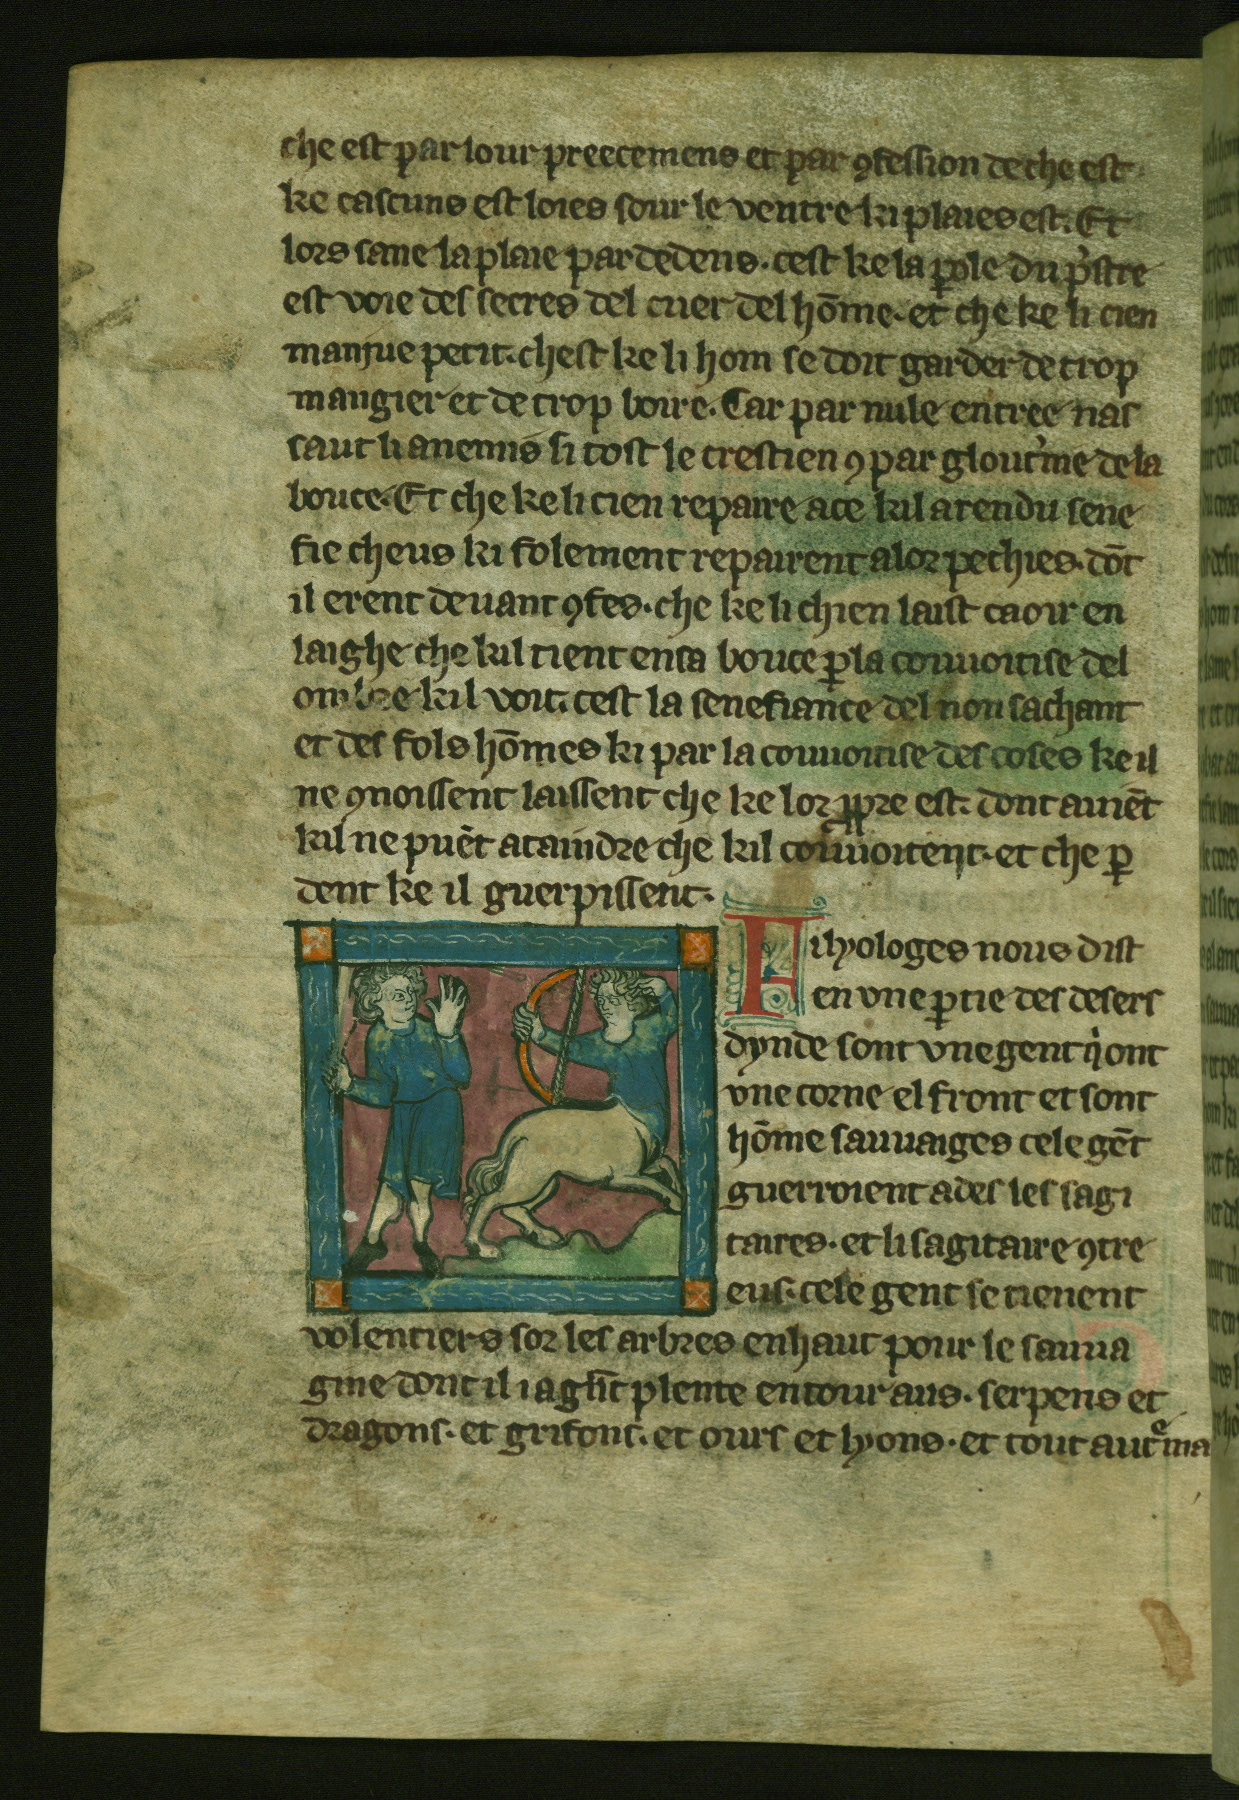 che est par lour preecemens et par ꝯfession de che est
ke cascuns est loies sour le ventre ki plaies est. Et
lors sane la plaie par dedens. cest ke la ꝑole du p̓stre
est voie des secres del cuer del hōme. et che ke li cien
manjue petit. chest ke li hom se doit garder de trop
mangier et de trop boire. Car par nule entree nas
saut li anemis si tost le crestien ꝯ par glout̓nie de la
bouce. Et che ke li cien repaire a ce kil a rendu sene
fie cheus ki folement repairent a lor pechies. dōt
il erent devant ꝯfes. che ke li chien laist caoir en
laighe che kil tient en sa bouce ꝑ la couvoitise del
ombre kil voit. cest la senefiance del non sachant
et des fols hōmes ki par la couvoitise des coses ke il
ne ꝯnoissent laissent che ke lor ꝓpre est. dont aviēt
kil ne puēt ataindre che kil couvoitent. et che ꝑ
dent ke il guerpissent.
Fihyologes nous dist
en vne ꝑtie des desers
dynde sont vne gent qͥ ont
vne corne el front et sont
hōme sauvaiges cele gēt
guerroient ades les sagi
taires. et li sagitaire ꝯtre
eus. cele gent se tienent
volentiers sor les arbres en haut pour le sauva
gine dont il i a gñt plente entour aus. serpens et
dragons. et grifons. et ours et lyons. et tout aut̓